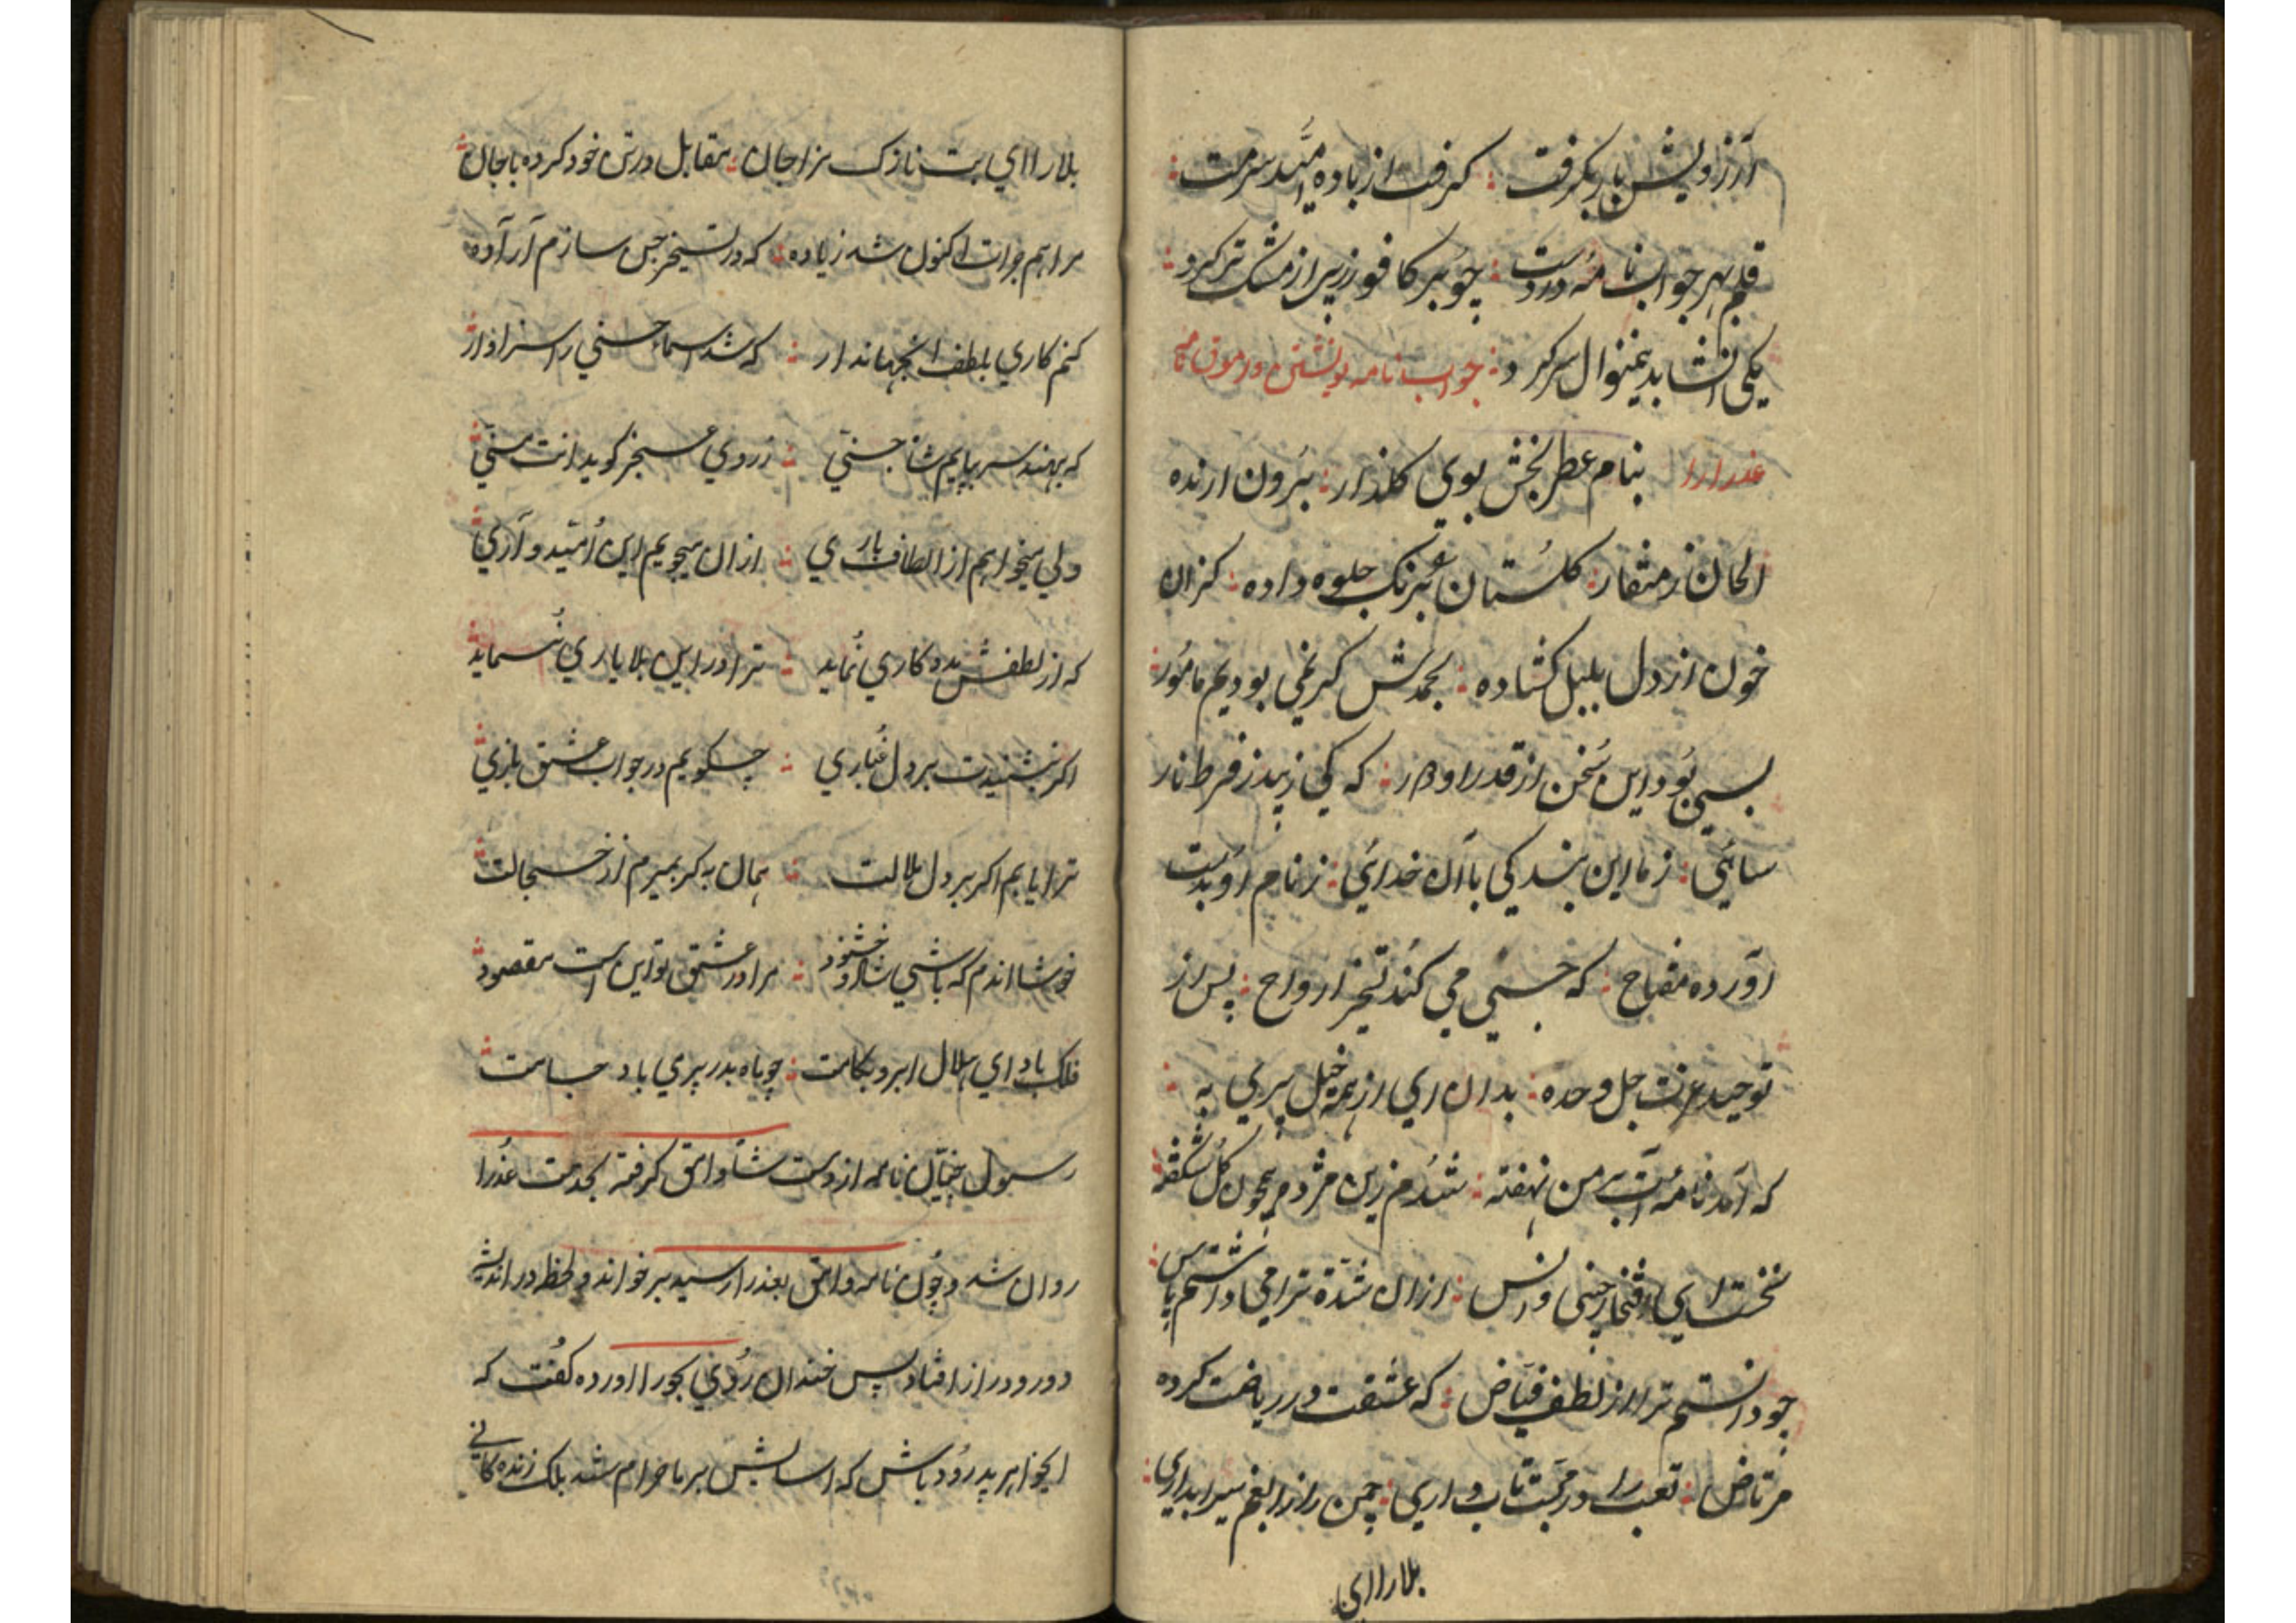 از زویش باربگرفت : گرفت از باده امید سرمست
قلم بهر جواب نامه دردست : چو بر کافور زیر از مشک تر کرد
یکی انشا بدینمنوال سر کرد : جواب نامه نوشتن وامق نامی
عذرا را بنام عطر بخش بوی کلذار : برون ارنده
الحان ز منقار : کلستان بیرنک جلوه داده : کزان
خون از دل بلبل کشاده : بحمدش کر نمی بودیم مامور
بسی بود این سخن از قدر ما دور : که کی زیبد ز فرط نار
سائی : ز ما این بندکی با آن خدائی : ز نام او بدست
اورده مفتاح : که جسمی می کند تسخیر ارواح : پس از
توحید عزت جل وحده : بدان ای از همه خیل پری به
که آمد نامه ات بر من نهفته : شدم زین مژده همچون کل شکفته
نخست ای افتخار جنی وانس : ازان شدة ترا می داشتم پاس
چو دانستم ترا از لطف فیاض : که عشقت در ریاضت کرده
مرتاض : تعب را در محبت تاب داری : چمن را زابغم سیرابداری
بلا را ای
بلا را ای بت نازک مزاجان : مقابل در تن خود کرده با جان
مرا هم جرات اکنون شد زیاده : که در تسخیر جن سازم آراده
کنم کاری بلطف انجهاندار : که شد اسماء حسنی را سزاوار
که بهند سر بپایم شاه جنی : ز روی عجز کوید انت منی
ولی میخواهم از الطاف باری : ازان میجویم این امید و آری
که از لطفش مددکاری نماید : ترا در این بلا یاری نماید
اکر بنشیندت بر دل غباری : چکویم در جواب عشق بازی
ترا یابم اکر بر دل ملالت : همان به کر بمیرم از خجالت
خوشا اندم که باشی شاد و خشنود : مرا در عشق تو این است مقصود
فلک باد ای هلال ابرو بکامت : چو ماه بدر پری باد جامت
رسول جنیان نامه از دست شاه وامق کرفته بخدمت عذرا
روان شد و چون نامه وامق بعذرا رسید بر خواند و لحظه در اندیشه
دور و دراز افتاد پس خندان روی بحورا اورده کفت که
ایخواهر پدرود باش که اسایش بر ما حرام شد بلک زنده کانی